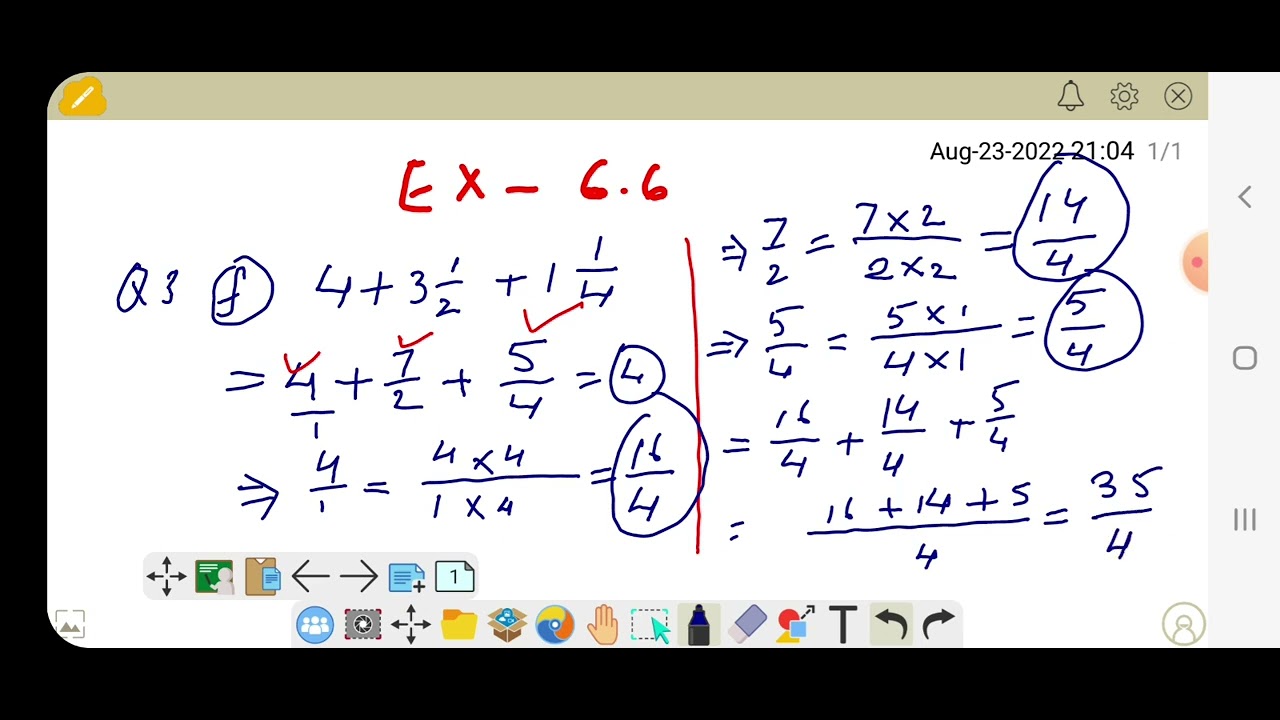 Aug-23-2022 21:04 1/1
EX - 6.6
Q3 (f) 4 + 3 1/2 + 1 1/4
= 4/1 + 7/2 + 5/4 = 4
⇒ 4/1 = 4 × 4 / 1 × 4 = 16/4
⇒ 7/2 = 7 × 2 / 2 × 2 = 14/4
⇒ 5/4 = 5 × 1 / 4 × 1 = 5/4
= 16/4 + 14/4 + 5/4
= 16 + 14 + 5 / 4 = 35/4
1
T